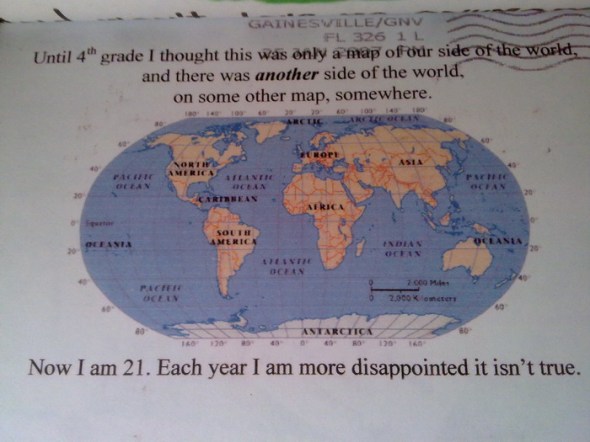 GAINESVILLE/GNV
FL 326 1 L
Until 4th grade I thought this was only a map of our side of the world,
and there was another side of the world,
on some other map, somewhere.
180° 140° 100° 60° 20° 20° 60° 100° 140° 180°
ARCTIC ARCTIC OCEAN
NORTH AMERICA
EUROPE
ASIA
PACIFIC OCEAN
ATLANTIC OCEAN
PACIFIC OCEAN
CARIBBEAN
AFRICA
Equator
OCEANIA
SOUTH AMERICA
INDIAN OCEAN
OCEANIA
ATLANTIC OCEAN
PACIFIC OCEAN
0 2,000 Miles
0 2,000 Kilometers
ANTARCTICA
160° 120° 80° 40° 0° 40° 80° 120° 160°
Now I am 21. Each year I am more disappointed it isn't true.